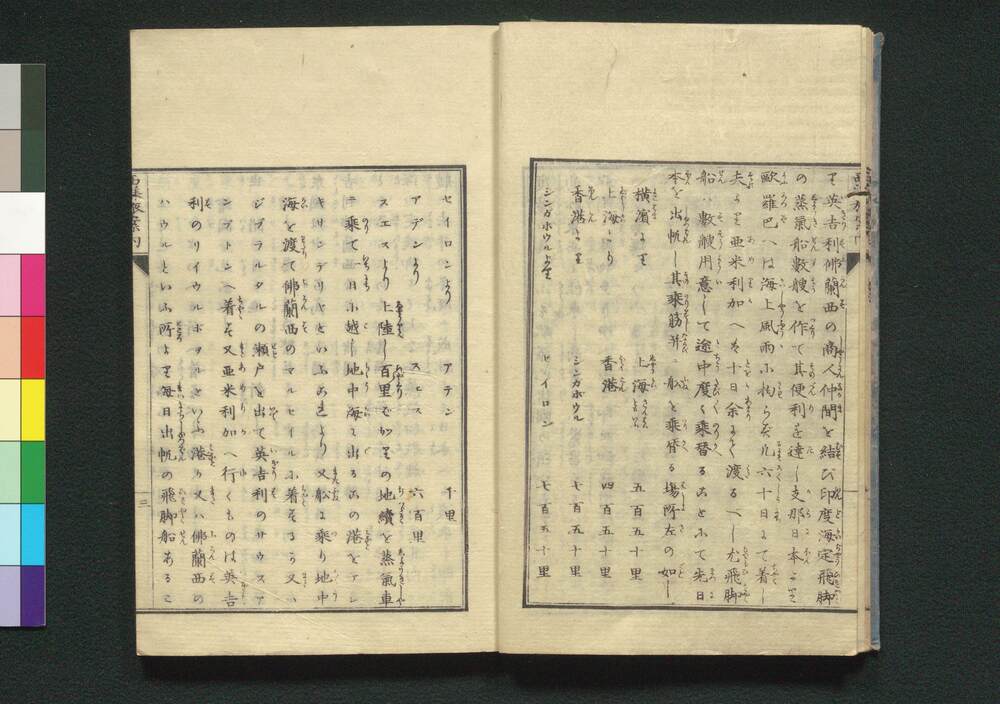 り英吉利佛蘭西の商人仲間を結び印度海定飛脚
の蒸氣船數艘を作て其便利を達し支那日本より
歐羅巴へは海上風雨小拘らず凡六十日にて着し
夫より亜米利加へも十日余にて渡るべし尤飛脚
船ハ數艘用意して途中度々乗替ることにて先日
本を出帆し其乗筋并ニ舩を乗替る場所左の如し
横濱より 上海 五百五十里
上海より 香港 四百五十里
香港より シンガホウル 七百五十里
シンガホウルより セイロン 七百五十里
セイロンより アデン 千里
アデンより スエス 六百里
スエスより上陸し百里でかりの地續を蒸氣車
ニ乗て一日小越し地中海に出るこの港をアレ
キサンデリヤといふあれより又舩に乗り地中
海を渡て佛蘭西のマルセイルに着するか又ハ
ジブラルタルの瀬戸を出て英吉利のサウスア
ンプトンへ着す又亜米利加へ行くものは英吉
利のリイウルポウルといふ港か又ハ佛蘭西の
ハウルといふ所より毎日出帆の飛脚船あるこ
西洋旅案内
二